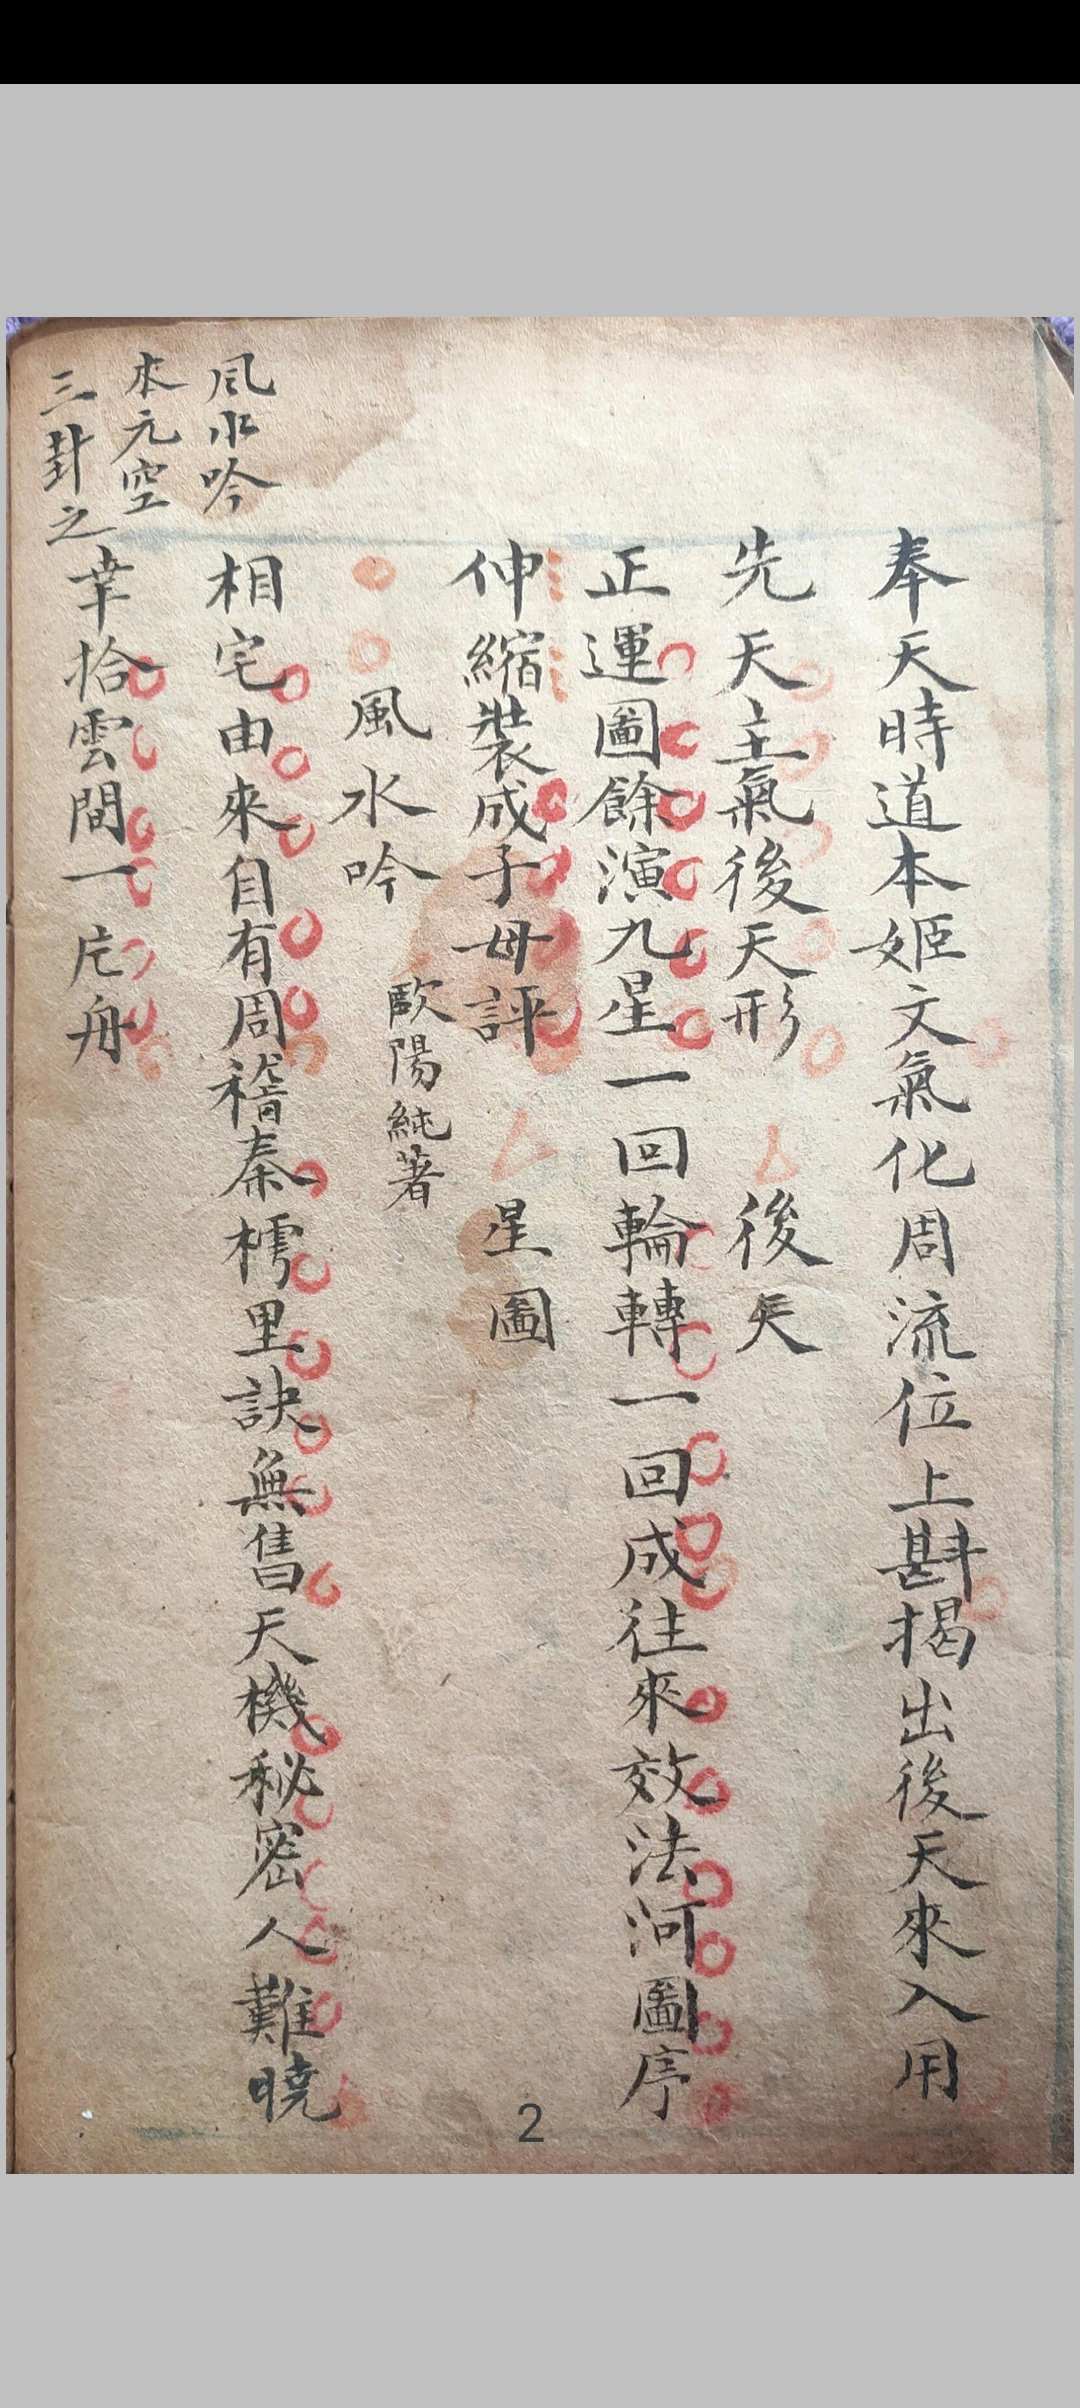 奉天時道本姬文氣化周流位上斟揭出後天來入用
先天主氣後天形　後天
正運圖餘演九星一回輪轉一回成往來效法河圖序
伸縮裝成子母評　星圖
風水吟　歐陽純著
風水吟
相宅由來自有周稽秦樗里訣無售天機秘密人難曉
本元空
三封之
幸拾雲間一片舟
2